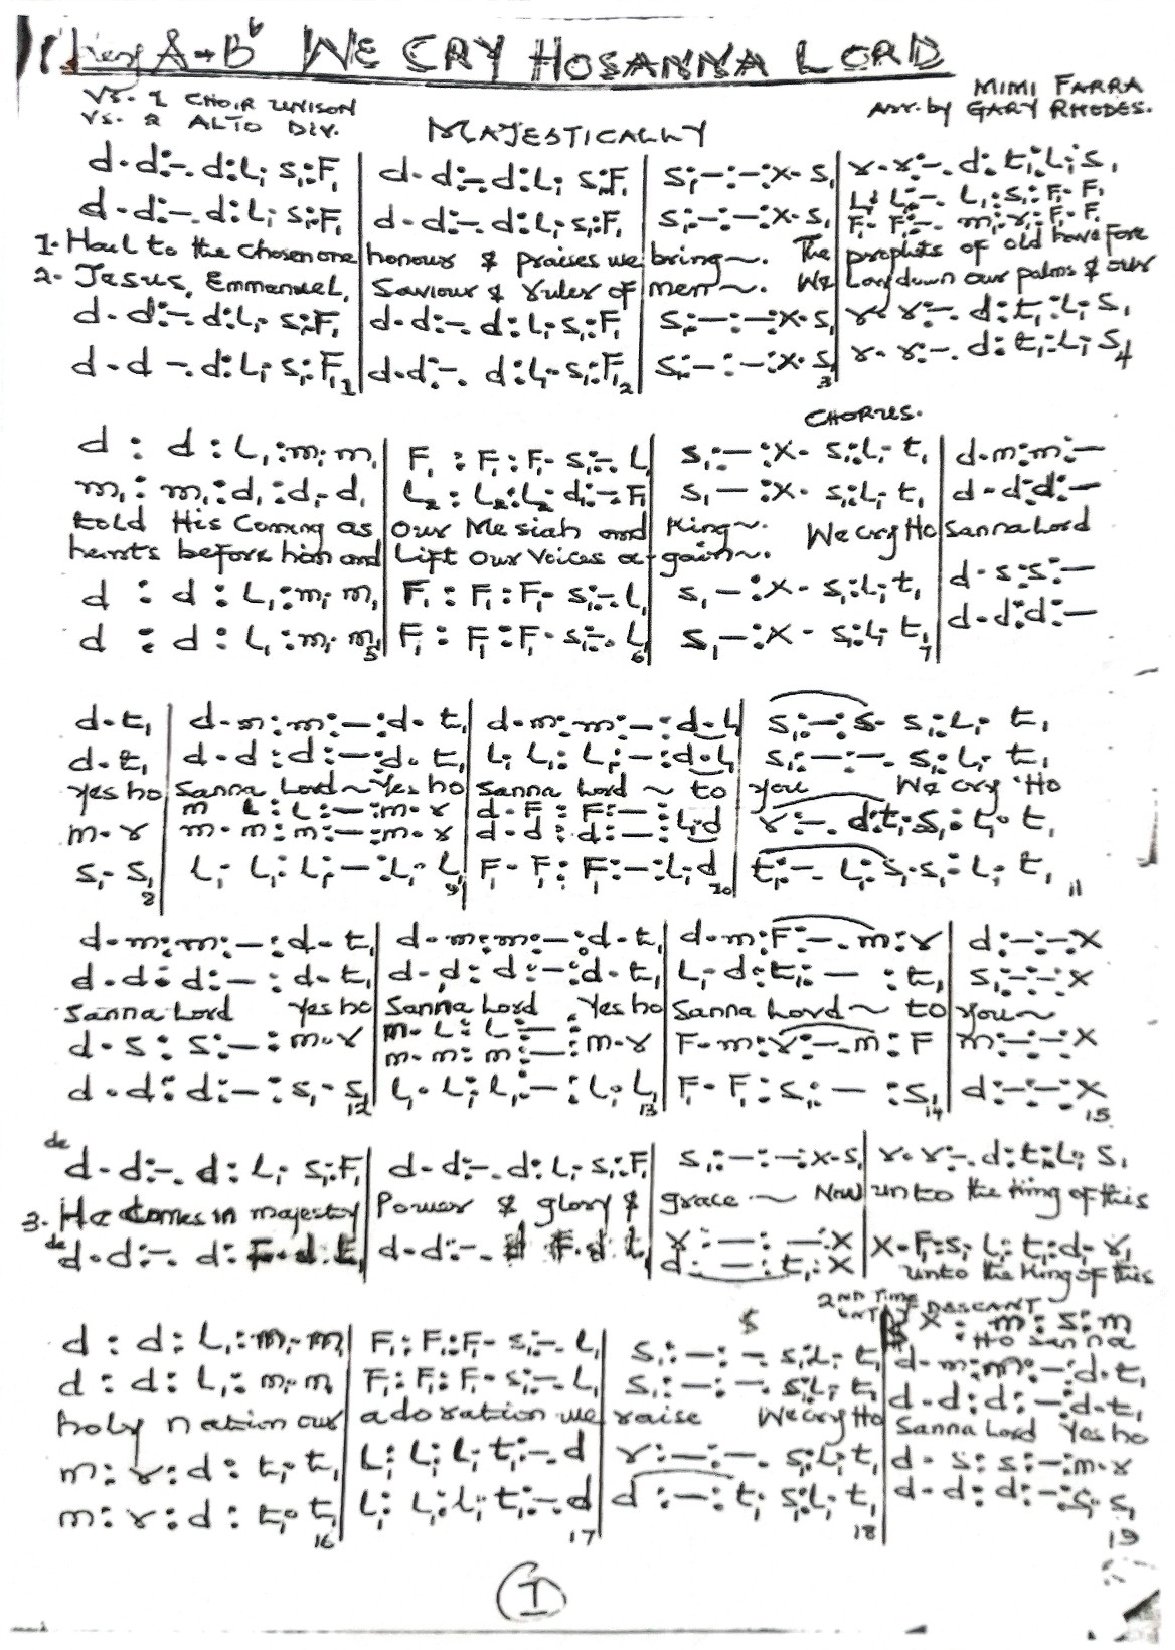 Key A→B♭ WE CRY HOSANNA LORD
MIMI FARRA
VS. 1 CHOIR UNISON
VS. 2 ALTO DIV.
Arr. by GARY RHODES.
MAJESTICALLY
d-d:-.d:L,S,:F, | d-d:-.d:L,S,:F, | S,:-:-:X-S, | r-r:-.d:t,:L,:S,
L,L,:-. L,:S,:F,-F,
d-d:-.d:L,S,:F, | d-d:-.d:L,S,:F, | S,:-:-:X-S, | F,-F,:-. m,:r,:F,-F,
1- Hail to the Chosen one | honour & praises we | bring~. The | prophets of old have fore
2- Jesus, Emmanuel, | Saviour & ruler of | men~. We | Lay down our palms & our
d-d:-.d:L,-S,:F, | d-d:-.d:L,-S,:F, | S,:-:-:X-S, | r-r:-.d:t,:L,:S,
d-d-.d:L,S,:F, 1 | d-d:-. d:L,-S,:F, 2 | S,:-:-:X-S, 3 | r-r:-.d:t,:L,:S, 4
CHORUS.
d : d : L,:m,-m, | F, : F,: F,- S,:-. L, | S,:-:X- S,:L,- t, | d-m:m:-
m,: m,:d,:d,-d, | L₂: L₂:L₂- d,:-F, | S,-:X- S,:L,- t, | d-d:d:-
told His Coming as | Our Mesiah and | King~. We cry Ho | Sanna Lord
hearts before him and | Lift Our Voices a- | gain~.
d : d : L,:m,-m, | F,: F,:F,- S,:-.L, | S,-:X- S,:L,-t, | d-s:s:-
d : d : L,:m,-m, 5 | F,: F,:F,- S,:-. L, 6 | S,-:X- S,:L,- t, 7 | d-d:d:-
d-t, | d-m:m:-:d- t, | d-m:m:-:d-L, | S,:-:S- S,:L,- t,
d-t, | d-d:d:-:d-t, | L,-L,:L,:-:d-L, | S,:-:-. S,:L,- t,
yes ho | Sanna Lord~Yes ho | Sanna Lord ~ to | you We cry Ho
m L : L:-:m-r | d-F : F:-:
m-r | m-m:m:-:m-r | d-d : d:-:L,-d | r:-. d:t,-S,: t,- t,
S,- S, 8 | L,- L,: L,:-:L,- L, 9 | F,- F,: F,:-:L,-d 10 | t,:-. L,:S,-S,: L,- t, 11
d-m:m:-:d-t, | d-m:m:-:d-t, | d-m:F:-.m:r | d:-:-X
d-d:d:-:d-t, | d-d:d:-:d-t, | L,-d:t,:- :t, | S,:-:-:X
Sanna Lord Yes ho | Sanna Lord Yes ho | Sanna Lord~ to | you~
m-L:L:-:
d-s:s:-:m-r | m-m:m:-:m-r | F-m:r:-.m:F | m:-:-X
d-d:d:-:S,-S, 12 | L,-L,:L,:-:L,-L, 13 | F,-F,:S,:-:S, 14 | d:-:-X 15
de d-d:-.d:L,-S,:F, | d-d:-.d:L,-S,:F, | S,:-:-:X-S, | r-r:-.d:t,:L,:S,
3- He comes in majesty | Power & glory & | grace ~ Now | unto the King of this
X:-:-:X | X-F,:S,:L,:t,:d-r,
d:-:t,:X
unto the King of this
2ND TIME DESCANT
X : m:s:m
Ho sanna
d : d: L,:m,-m, | F,:F,:F,- S,:-.L, | S,:-:-. S,:L,-t, | d-m:m:-:d-t,
d : d: L,: m,-m, | F,:F,:F,- S,:-.L, | S,:-:-. S,:L,-t, | d-d:d:-:d-t,
holy nation our | adoration we | raise We cry Ho | Sanna Lord Yes ho
m:r:d: t,-t, | L,: L,:L,-t,:-.d | r:-:-. S,:L,-t, | d-s:s:-:m-r
m:r:d: t,-t, 16 | L,: L,:L,-t,:-.d 17 | d:-:t, S,:L,-t, 18 | d-d:d:-:S,-S, 19
1